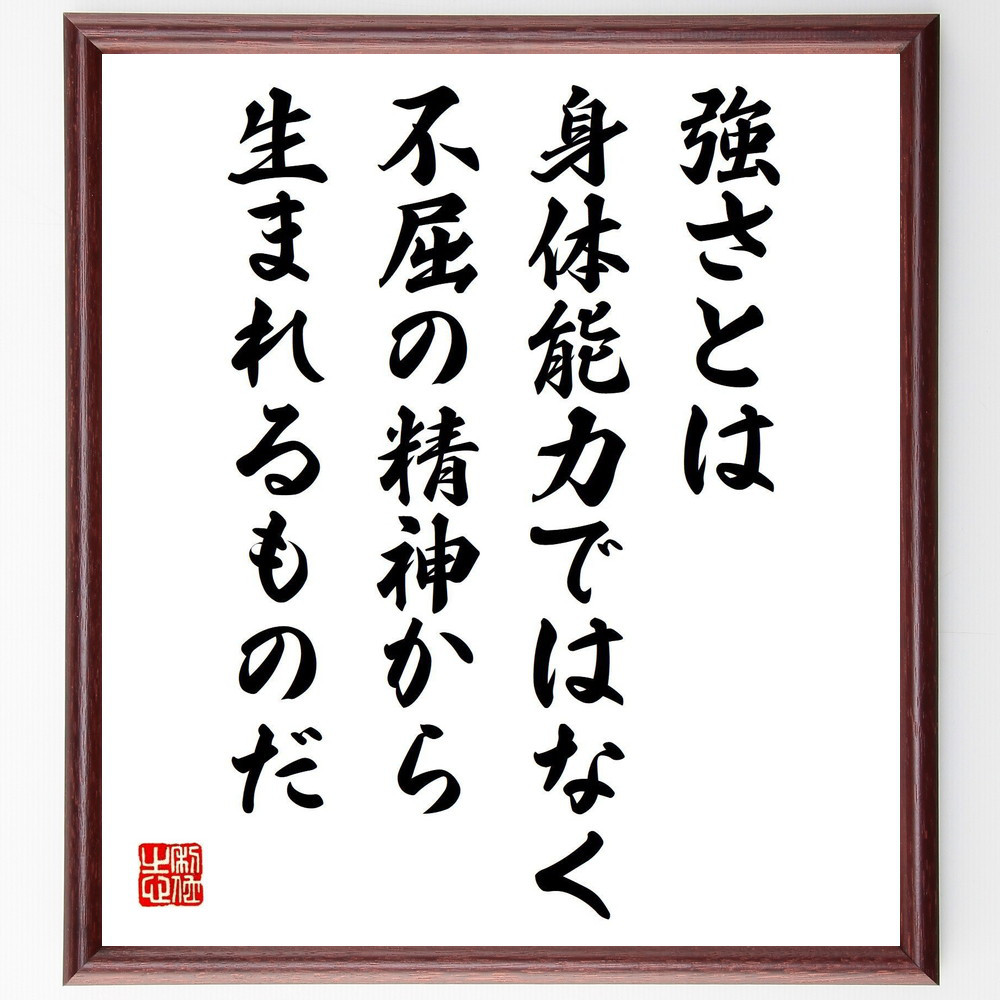 強さとは
身体能力ではなく
不屈の精神から
生まれるものだ